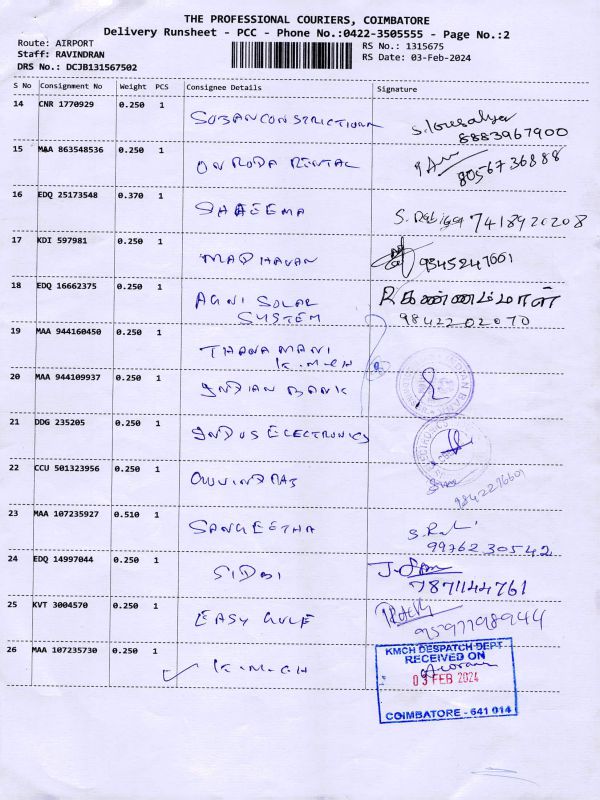 THE PROFESSIONAL COURIERS, COIMBATORE
Delivery Runsheet - PCC - Phone No.:0422-3505555 - Page No.:2
Route: AIRPORT
Staff: RAVINDRAN
DRS No.: DCJB131567502
RS No.: 1315675
RS Date: 03-Feb-2024
S No Consignment No Weight PCS Consignee Details Signature
14 CNR 1770929 0.250 1
8883967900
15 MAA 863548536 0.250 1 ON RODA RENTAL
8056736888
16 EDQ 25173548 0.370 1 SHAEEMA S. 7418920208
17 KDI 597981 0.250 1 MADHAVAN 9345247661
18 EDQ 16662375 0.250 1 AGNI SOLAR
SYSTEM
R கண்ணம்மாள்
9842202070
19 MAA 944160450 0.250 1 THANAMANI
K.M.CH
20 MAA 944109937 0.250 1 INDIAN BANK
21 DDG 235205 0.250 1 INDUS ELECTRONICS
22 CCU 501323956 0.250 1
23 MAA 107235927 0.510 1 SANGEETHA
9976230542
24 EDQ 14997044 0.250 1 SIDBI
7871144761
25 KVT 3004570 0.250 1 EASY
9597798944
26 MAA 107235730 0.250 1 K.M.CH
KMCH DESPATCH DEPT
RECEIVED ON
03 FEB 2024
COIMBATORE - 641 014